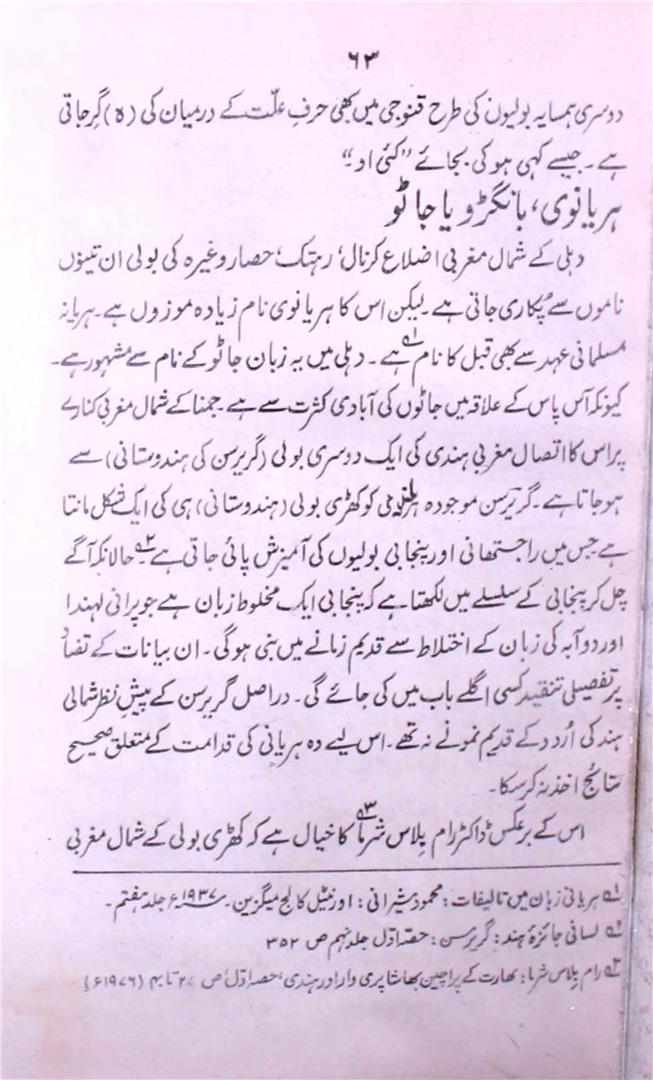 ۶۳
دوسری ہمسایہ بولیوں کی طرح قنوجی میں بھی حرفِ علّت کے درمیان کی (ہ) گِر جاتی
ہے۔ جیسے کہی ہو کی بجائے ”کئی او“
ہریانوی، بانگڑو یا جاٹو
دہلی کے شمال مغربی اضلاع کرنال، رہتک، حصار وغیرہ کی بولی ان تینوں
ناموں سے پُکاری جاتی ہے۔ لیکن اس کا ہریانوی نام زیادہ موزوں ہے۔ ہریانہ
مسلمانی عہد سے بھی قبل کا نام ہے۱؎۔ دہلی میں یہ زبان جاٹو کے نام سے مشہور ہے۔
کیونکہ آس پاس کے علاقہ میں جاٹوں کی آبادی کثرت سے ہے۔ جمنا کے شمال مغربی کنارے
پر اس کا اتصال مغربی ہندی کی ایک دوسری بولی (گریرسن کی ہندوستانی) سے
ہو جاتا ہے۔ گریرسن موجودہ کو کھڑی بولی (ہندوستانی) ہی کی ایک شکل مانتا
ہے جس میں راجستھانی اور پنجابی بولیوں کی آمیزش پائی جاتی ہے۲؎۔ حالانکہ آگے
چل کر پنجابی کے سلسلے میں لکھتا ہے کہ پنجابی ایک مخلوط زبان ہے جو پرانی لہندا
اور دوآبہ کی زبان کے اختلاط سے قدیم زمانے میں بنی ہوگی۔ ان بیانات کے تضاد
پر تفصیلی تنقید کسی اگلے باب میں کی جائے گی۔ دراصل گریرسن کے پیشِ نظر شمالی
ہند کی اُردو کے قدیم نمونے نہ تھے۔ اس لیے وہ ہریانی کی قدامت کے متعلق صحیح
نتائج اخذ نہ کرسکا۔
اس کے برعکس ڈاکٹر رام بِلاس شرما۳؎ کا خیال ہے کہ کھڑی بولی کے شمال مغربی
۱؎ ہریانی زبان میں تالیفات : محمود شیرانی : اورنٹیل کالج میگزین۔ ۱۹۳۷ء جلد ہفتم۔
۲؎ لسانی جائزۂ ہند : گریرسن : حصّہ اوّل جلد نہم ص ۳۵۲
۳؎ رام بِلاس شرما : بھارت کے پراچین بھاشا پری وار اور ہندی، حصہ اوّل، ص ۲۷ تا ۴۰ (۱۹۷۶ء)